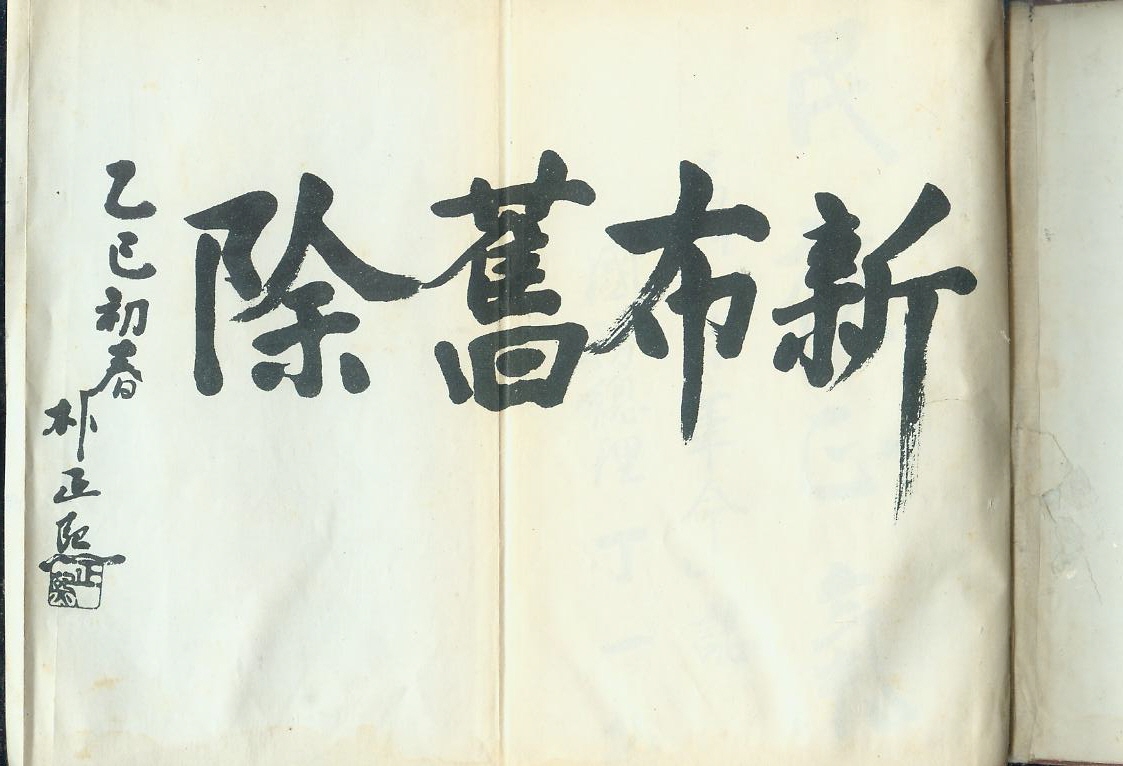 新布舊除
乙巳初春
朴正熙
正熙